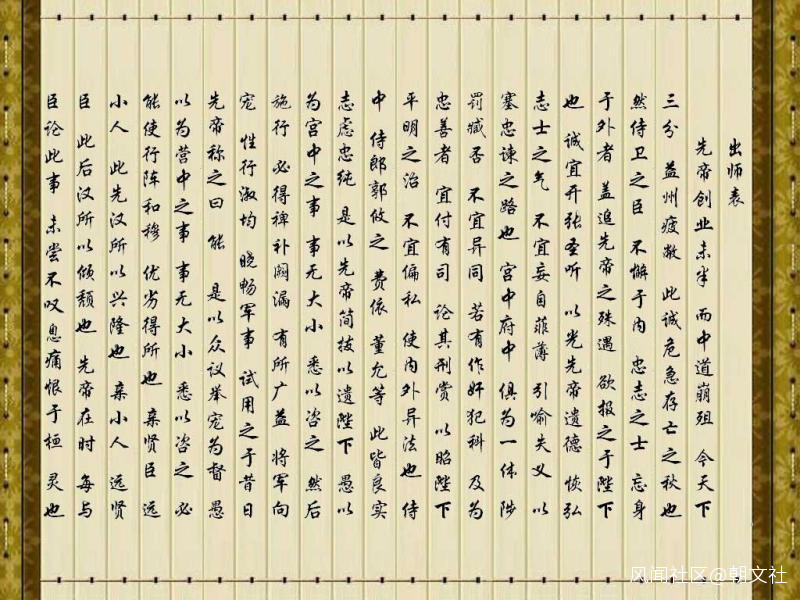 出师表
先帝创业未半 而中道崩殂 今天下
三分 益州疲敝 此诚危急存亡之秋也
然侍卫之臣 不懈于内 忠志之士 忘身
于外者 盖追先帝之殊遇 欲报之于陛下
也 诚宜开张圣听 以光先帝遗德 恢弘
志士之气 不宜妄自菲薄 引喻失义 以
塞忠谏之路也 宫中府中 俱为一体 陟
罚臧否 不宜异同 若有作奸犯科 及为
忠善者 宜付有司 论其刑赏 以昭陛下
平明之治 不宜偏私 使内外异法也 侍
中 侍郎郭攸之 费依 董允等 此皆良实
志虑忠纯 是以先帝简拔以遗陛下 愚以
为宫中之事 事无大小 悉以咨之 然后
施行 必得裨补阙漏 有所广益 将军向
宠 性行淑均 晓畅军事 试用之于昔日
先帝称之曰 能 是以众议举宠为督 愚
以为营中之事 事无大小 悉以咨之 必
能使行阵和穆 优劣得所也 亲贤臣 远
小人 此先汉所以兴隆也 亲小人 远贤
臣 此后汉所以倾颓也 先帝在时 每与
臣论此事 未尝不叹息痛恨于桓 灵也
风闻社区@朝文社